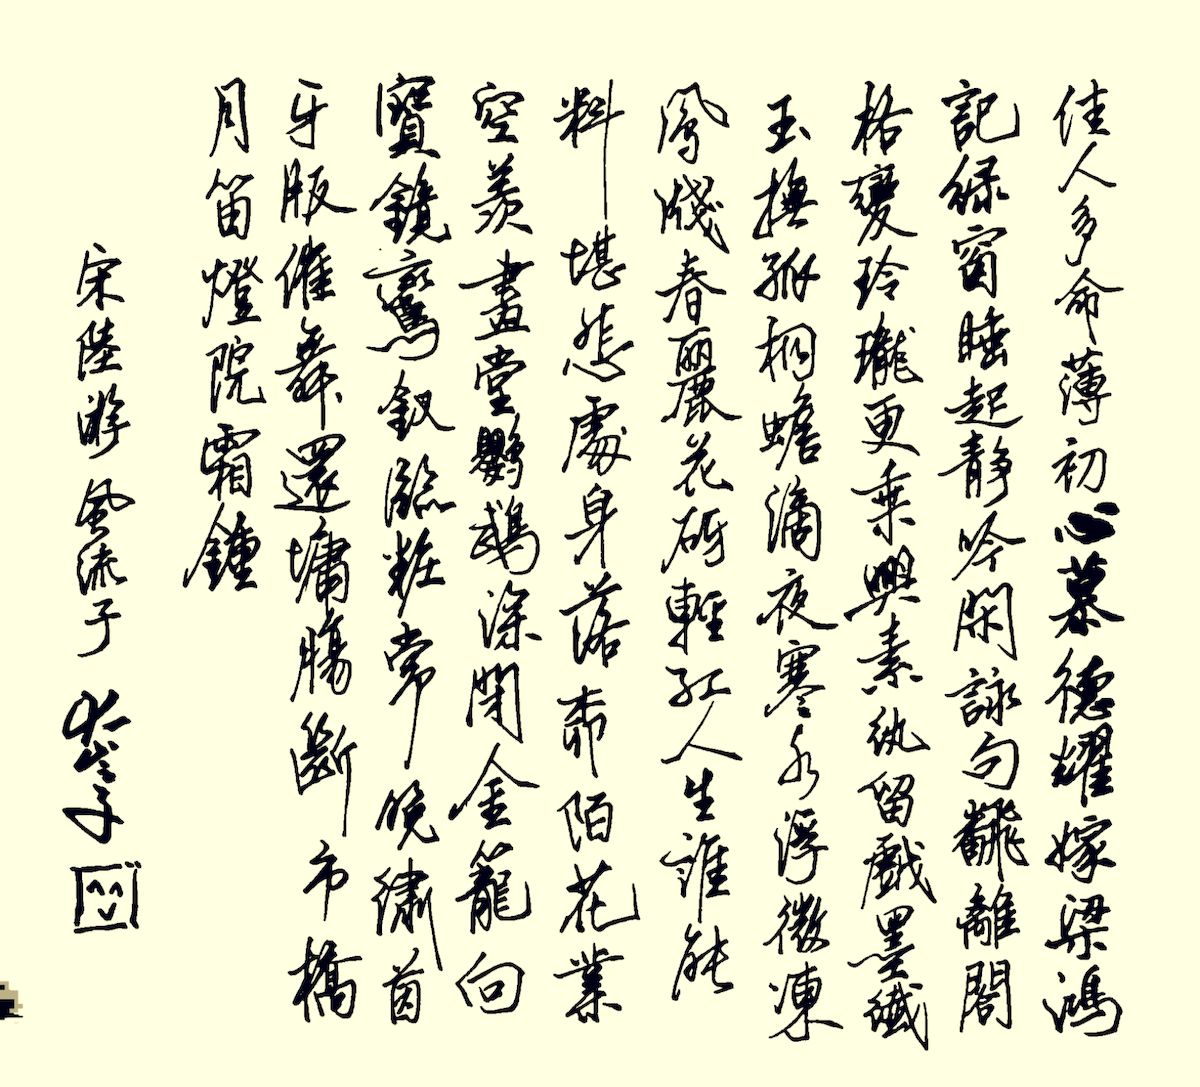 佳人多命薄初心慕德耀嫁梁鴻
記綠窗睡起靜吟閑詠句翻離閤
格變玲瓏更乘興素紈留戲墨纖
玉撫孤桐蟾滴夜寒水浮微凍
鳳牋春麗花砑輕紅人生誰能
料堪悲處身落柳陌花業
空羨畫堂鸚鵡深閉金籠向
寶鏡鸞釵臨粧常晚繡茵
牙版催舞還慵腸斷市橋
月笛燈院霜鐘
宋陸游風流子